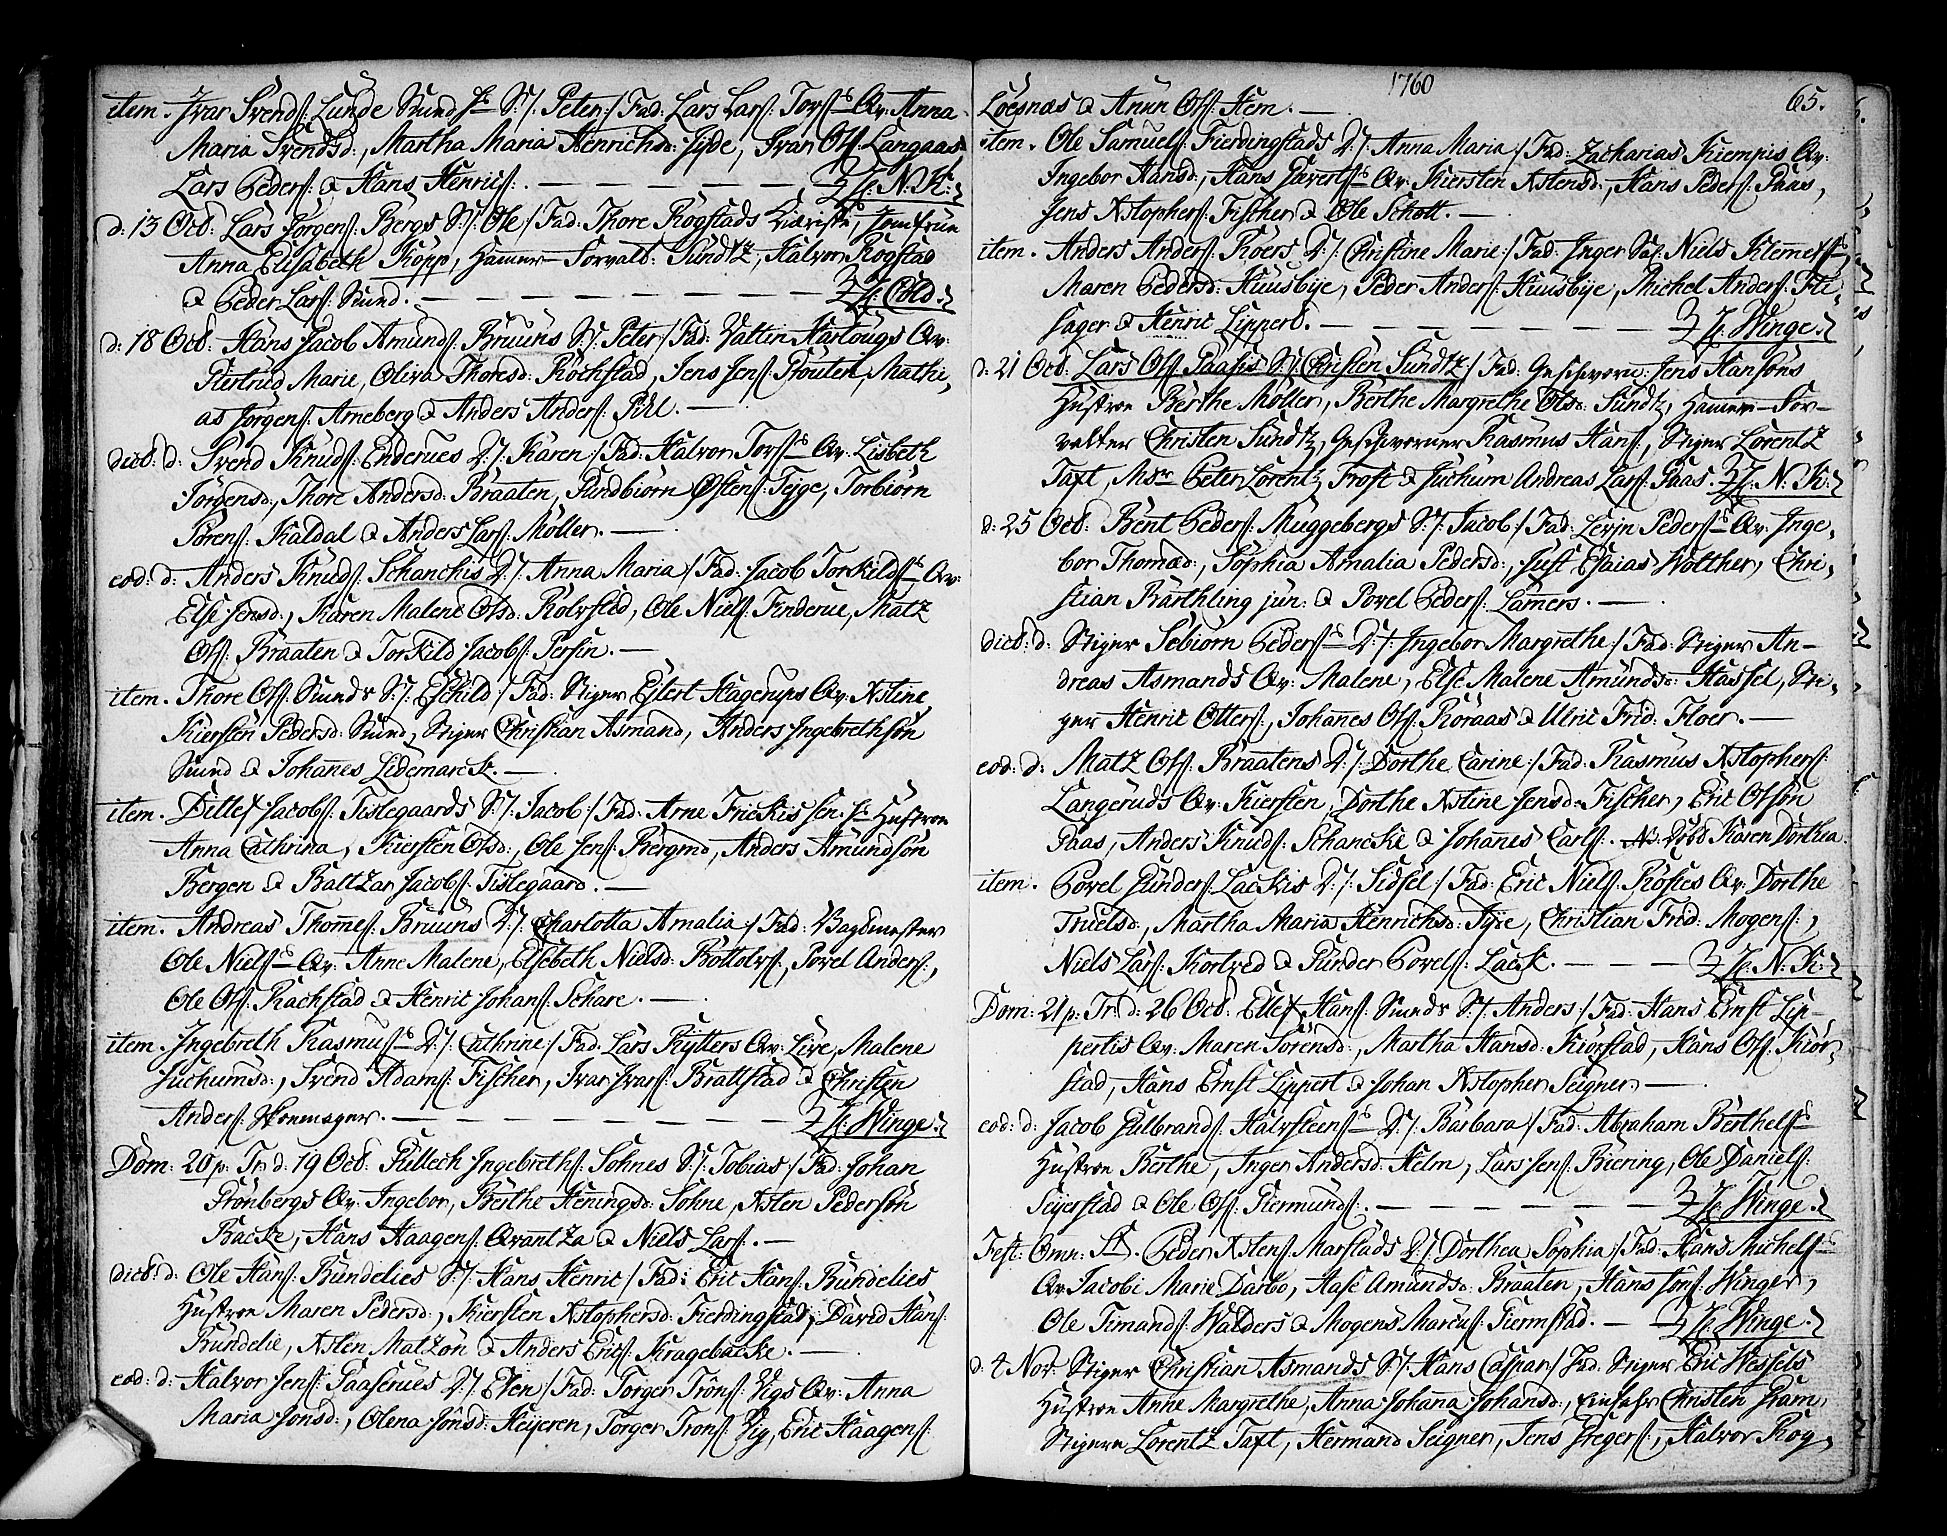 item. Ivar Svends: Lunde Sund S:/: Peter:/ Fad: Lars Lars: Tors Qv: Anna
Maria Svendsd:, Martha Maria Henrichsd: Jyde, Ivar Ols: Langaas
Lars Peders: & Hans Henrics:. — H: N: K:
d: 13 Octb: Lars Jørgens: Bergs S:/: Ole:/ Fad: Thore Rogstads Qvinde, Jomfrue
Anna Elisabeth Kopp, Hamer-Forvalt: Sundtz, Halvor Rogstad
& Peder Lars: Sund. — H: Cold
d: 18 Octb: Hans Jacob Amunds: Bruuns S:/: Peter/ Fad: Valtin Hartougs Qv:
Giertrud Marie, Oliva Thoresd: Rochstad, Jens Jens: Grouten, Mathi,
as Jørgens: Arneberg & Anders Anders: Pihl. —
dict: d: Svend Knuds: Enderues D:/: Karen:/ Fad: Halvor Tors Qv: Lisbeth
Jørgensd:, Thore Andersd: Braaten, Gundbiørn Østens: Teyge, Torbiørn
Sørens: Kaldal & Anders Lars: Møller. —
eod: d: Anders Knuds: Schanchis D:/: Anna Maria:/ Fad: Jacob Torkilds Qv:
Else Jensd:, Karen Malene Olsd: Kolvstad, Ole Niels: Finderue, Matz
Ols: Braaten & Torkild Jacobs: Persin. —
item. Thore Ols: Sunds S:/: Eschild:/ Fad: Stiger Eilert Hagerups Qv: Xstine
Kiersten Pedersd: Sund, Stiger Christian Asmand, Anders Ingebrethsøn
Sund & Johannes Lidemarck. —
item. Ditlef Jacobs: Tislegaards S:/: Jacob:/ Fad: Arne Frickis sen: Hustroe
Anna Cathrina, Kiersten Olsd:, Ole Jens: Bergmd, Anders Amundsøn
Bergen & Baltzar Jacobs: Tislegaard. —
item. Andreas Thomes: Bruuns D:/: Charlotta Amalia:/ Fad: Vagtmester
Ole Niels Qv: Anne Malene, Elsebeth Nielsd: Bottolvs:, Povel Anders:,
Ole Ols: Rachstad & Henric Johans: Schare. —
item. Ingebreth Rasmuss D:/: Cathrine:/ Fad: Lars Rytters Qv: Live, Malene
Juchumsd:, Svend Adams: Fischer, Ivar Ivars: Brattstad & Christen
Anders: Skoemager. — H: Winge
Dom: 20 p: Tr: d: 19 Octb: Gullech Ingebreths: Sohnes S:/: Tobias:/ Fad: Johan
Grønbergs Qv: Ingebor, Berthe Heningsd: Sohne, Xsten Pedersøn
Backe, Hans Haagens: Qvantza & Niels Lars:. —
dict: d: Ole Hans: Bundelies S:/: Hans Henric/ Fad: Eric Hans: Bundelies
Hustroe Maren Pedersd:, Kiersten Xstophersd: Fierdingstad, David Hans:
Bundelie, Xsten Matzøn & Anders Erics: Kragebacke. —
eod: d: Halvor Jens: Gaaserues D:/: Even/ Fad: Torger Trøns: Vigs Qv: Anna
Maria Jonsd:, Olena Jonsd: Heyeren, Torger Trons: Vig, Eric Haagens:
1760 65.
Loesnæs & Anun Ols: Hem. —
item. Ole Samuels: Fierdingstads D:/: Anna Maria:/ Fad: Zacharias Kiempis Qv:
Ingebor Hansd:, Hans Siverts Qv: Kiersten Xstensd:, Hans Peders: Paas,
Jens Xstophers: Fischer & Ole Schott. —
item. Anders Anders: Koers D:/: Christine Marie:/ Fad: Inger Sal: Niels Klemets
Maren Pedersd: Huusbye, Peder Anders: Huusbye, Michel Anders: Fli-
sager & Henric Lippert. — H: Winge
d: 21 Octb: Lars Ols: Paasis S:/: Christen Sundtz:/ Fad: Geschworn: Jens Hansøns
Hustroe Berthe Møller, Berthe Margrethe Olsd: Sundtz, Hamer-For-
valter Christen Sundtz, Geschworner Rasmus Hans:, Stiger Lorentz
Taft, Msr Peter Lorentz Frost & Juchum Andreas Lars: Paas: H: N: K:
d: 25 Octb: Bent Peders: Muggebergs S:/: Jacob:/ Fad: Levin Peders Qv: Inge,
bor Thomæd:, Sophia Amalia Pedersd:, Just Esaias Wolther, Chri,
stian Barthling jun: & Povel Peders: Lamers. —
dict: d: Stiger Sebiørn Peders D:/: Ingebor Margrethe:/ Fad: Stiger An-
dreas Asmands Qv: Malene, Else Malene Amundsd: Hassel, Sti-
ger Henric Otters:, Johanes Ols: Roraas & Ulric Frid: Floer. —
eod: d: Matz Ols: Braatens D:/: Dorthe Carine:/ Fad: Rasmus Xstophers:
Langeruds Qv: Kiersten, Dorthe Xstine Jensd: Fischer, Eric Olsøn
Paas, Anders Knuds: Schancke & Johanes Carls:. N: Døbt Karen Dorthea
item. Povel Gunders: Lackis D:/: Sidsel:/ Fad: Eric Niels: Kostes Qv: Dorthe
Truelsd:, Martha Maria Henrichsd: Jyde, Christian Frid: Mogens:,
Niels Lars: Kortved & Gunder Povels: Lack. — H: N: K:
Dom: 21 p: Tr: d: 26 Octb: Ellef Hans: Sunds S:/: Anders:/ Fad: Hans Ernst Lip-
pertis Qv: Maren Sørensd:, Martha Hansd: Kiørstad, Hans Ols: Kiør-
stad, Hans Ernst Lippert & Johan Xstopher Seigner. —
eod: d: Jacob Gulbrands: Halvsteens D:/: Barbara/ Fad: Abraham Berthels
Hustroe Berthe, Inger Andersd: Helm, Lars Jens: Biering, Ole Daniels:
Seyerstad & Ole Ols: Giermunds:. — H: Winge
Fest: Omn: St. Peder Xstens: Marstads D:/: Dorthea Sophia/ Fad: Hans Michels
Qv: Jacobi Marie Darbo, Aase Amundsd: Braaten, Hans Jøns: Winger,
Ole Simands: Walders & Mogens Marcus: Giermstad. — H: Winge
d: 4 Nov: Stiger Christian Asmands S:/: Hans Caspar/ Fad: Stiger Eric Wessels
Hustroe Anne Margrethe, Anna Johana Johansd:, Einfahr Christen Gram,
Stigere Lorentz Taft, Herman Seigner, Jens Gregers:, Halvor Rog-